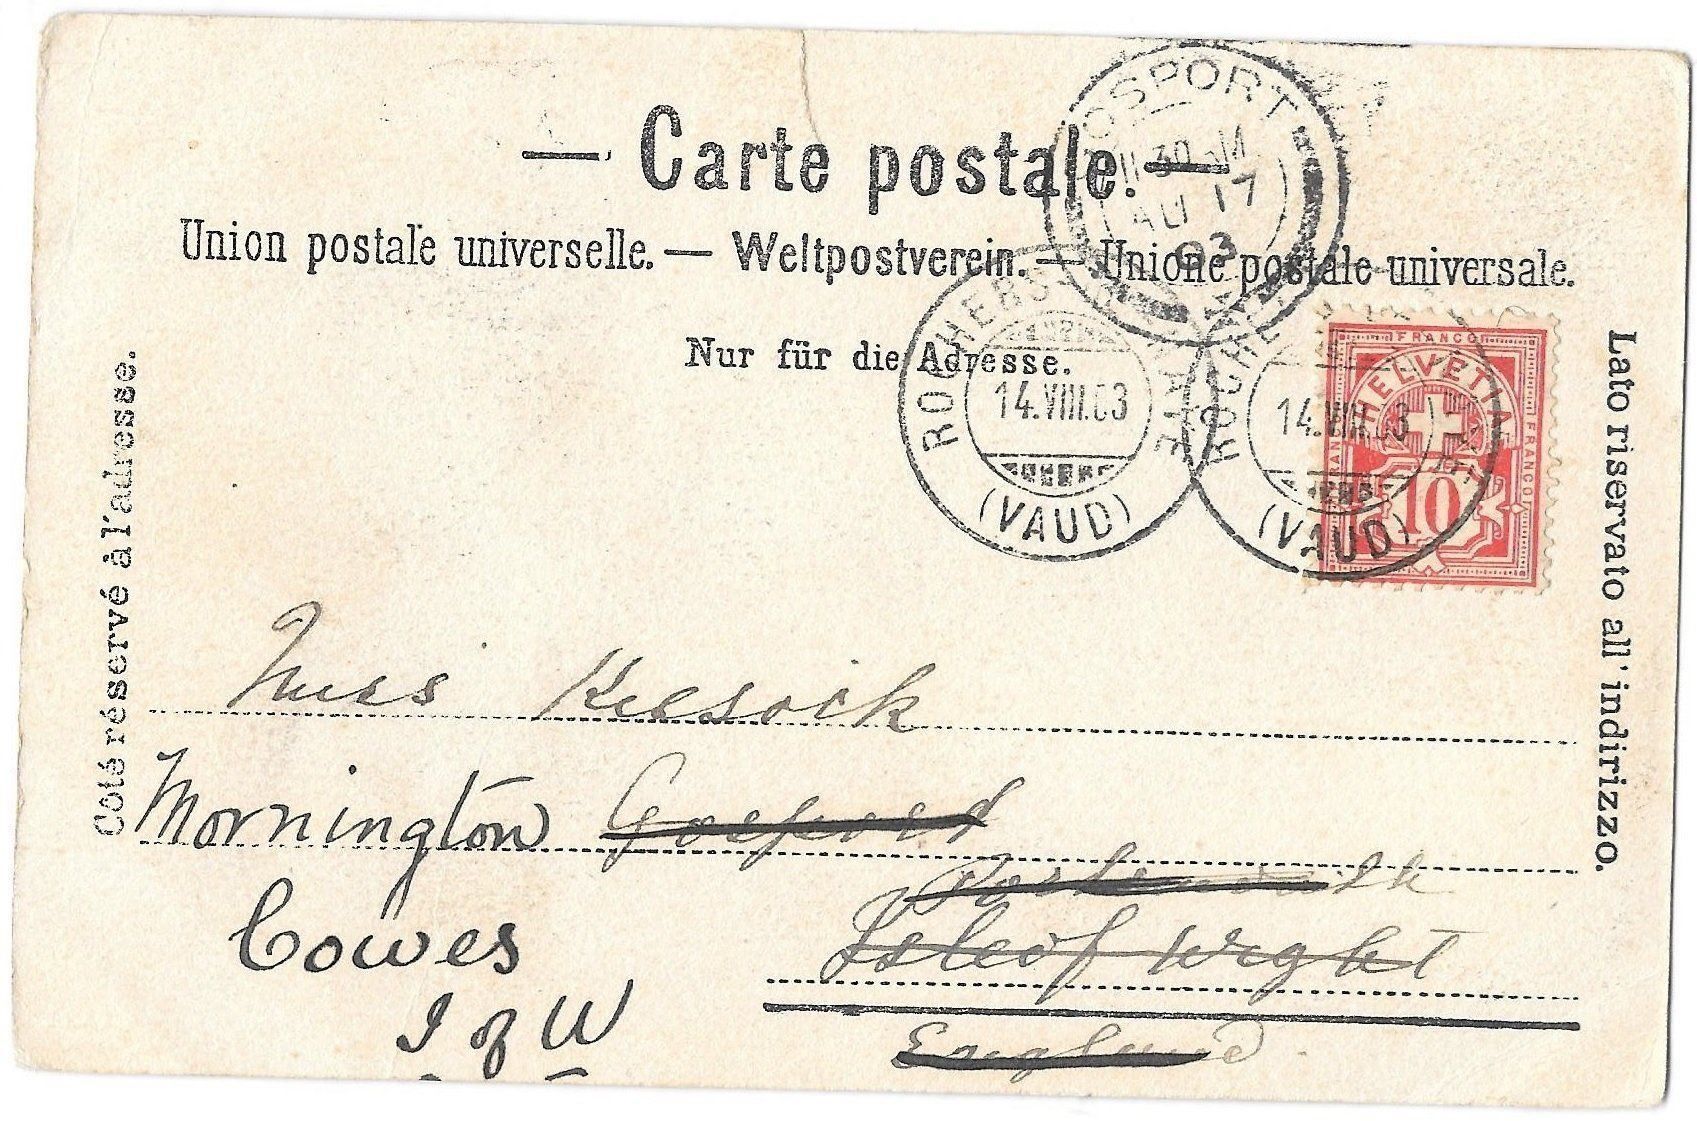 — Carte postale. —
Union postale universelle. — Weltpostverein. — Unione postale universale.
Nur für die Adresse.
Côté réservé à l'adresse.
Lato riservato all'indirizzo.
GOSPORT
11 30 AM
AU 17
03
ROCHERS NAYE
14.VIII.03
(VAUD)
ROCHE
14.VIII.03
(VAUD)
FRANCO
FRANCO
HELVETIA
10
Miss
Mornington Gosport
Portsmouth
Cowes Isle of Wight
I of W
England.